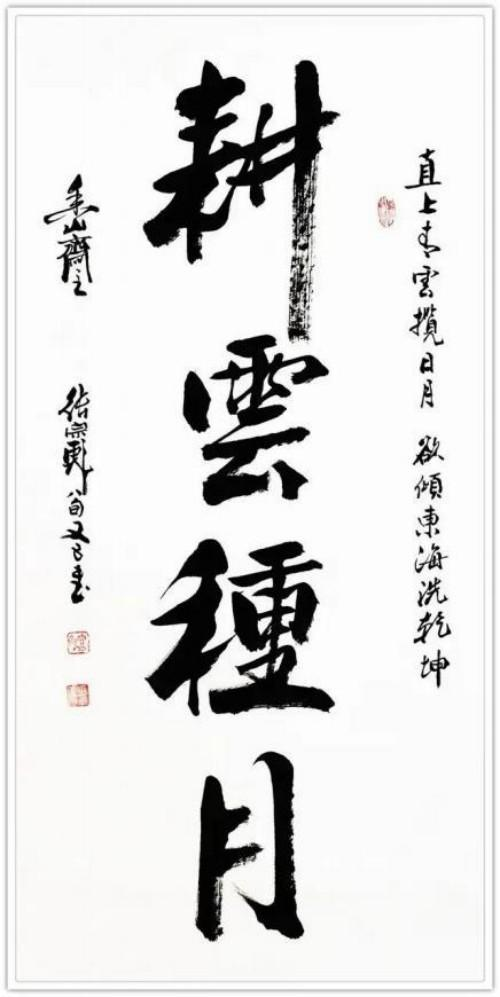 直上青雲攬日月 欲傾東海洗乾坤
耕雲種月
山齋主
八旬又 書